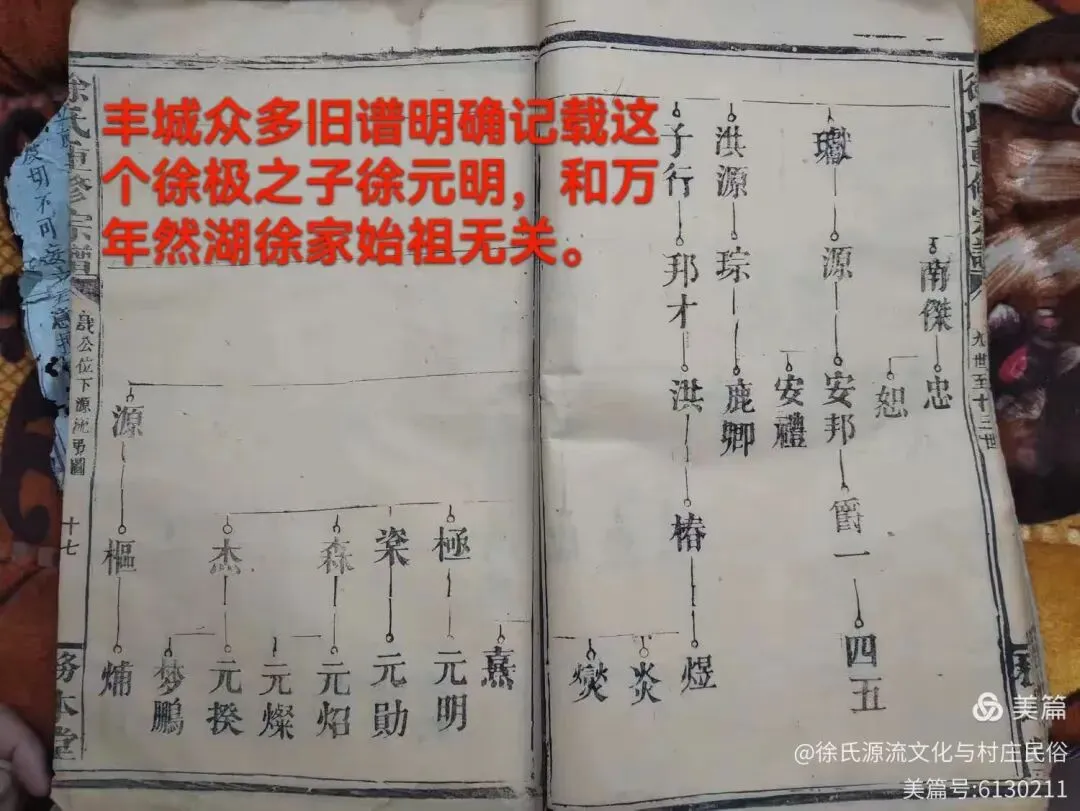 丰城众多旧谱明确记载这
个徐极之子徐元明，和万
年然湖徐家始祖无关。
南傑
忠
恕
源
安邦
爵一
四五
安禮
洪源
琮
鹿卿
子行
邦才
洪
椿
煜
炎
燹
熹
極
元明
元勛
森
元炤
元燦
杰
元揆
梦鵬
源
樞
九世至十三世
徐氏重修宗譜
公位下源沈男圖
十七
務本堂
切不可
美篇
@徐氏源流文化与村庄民俗
美篇号:6130211